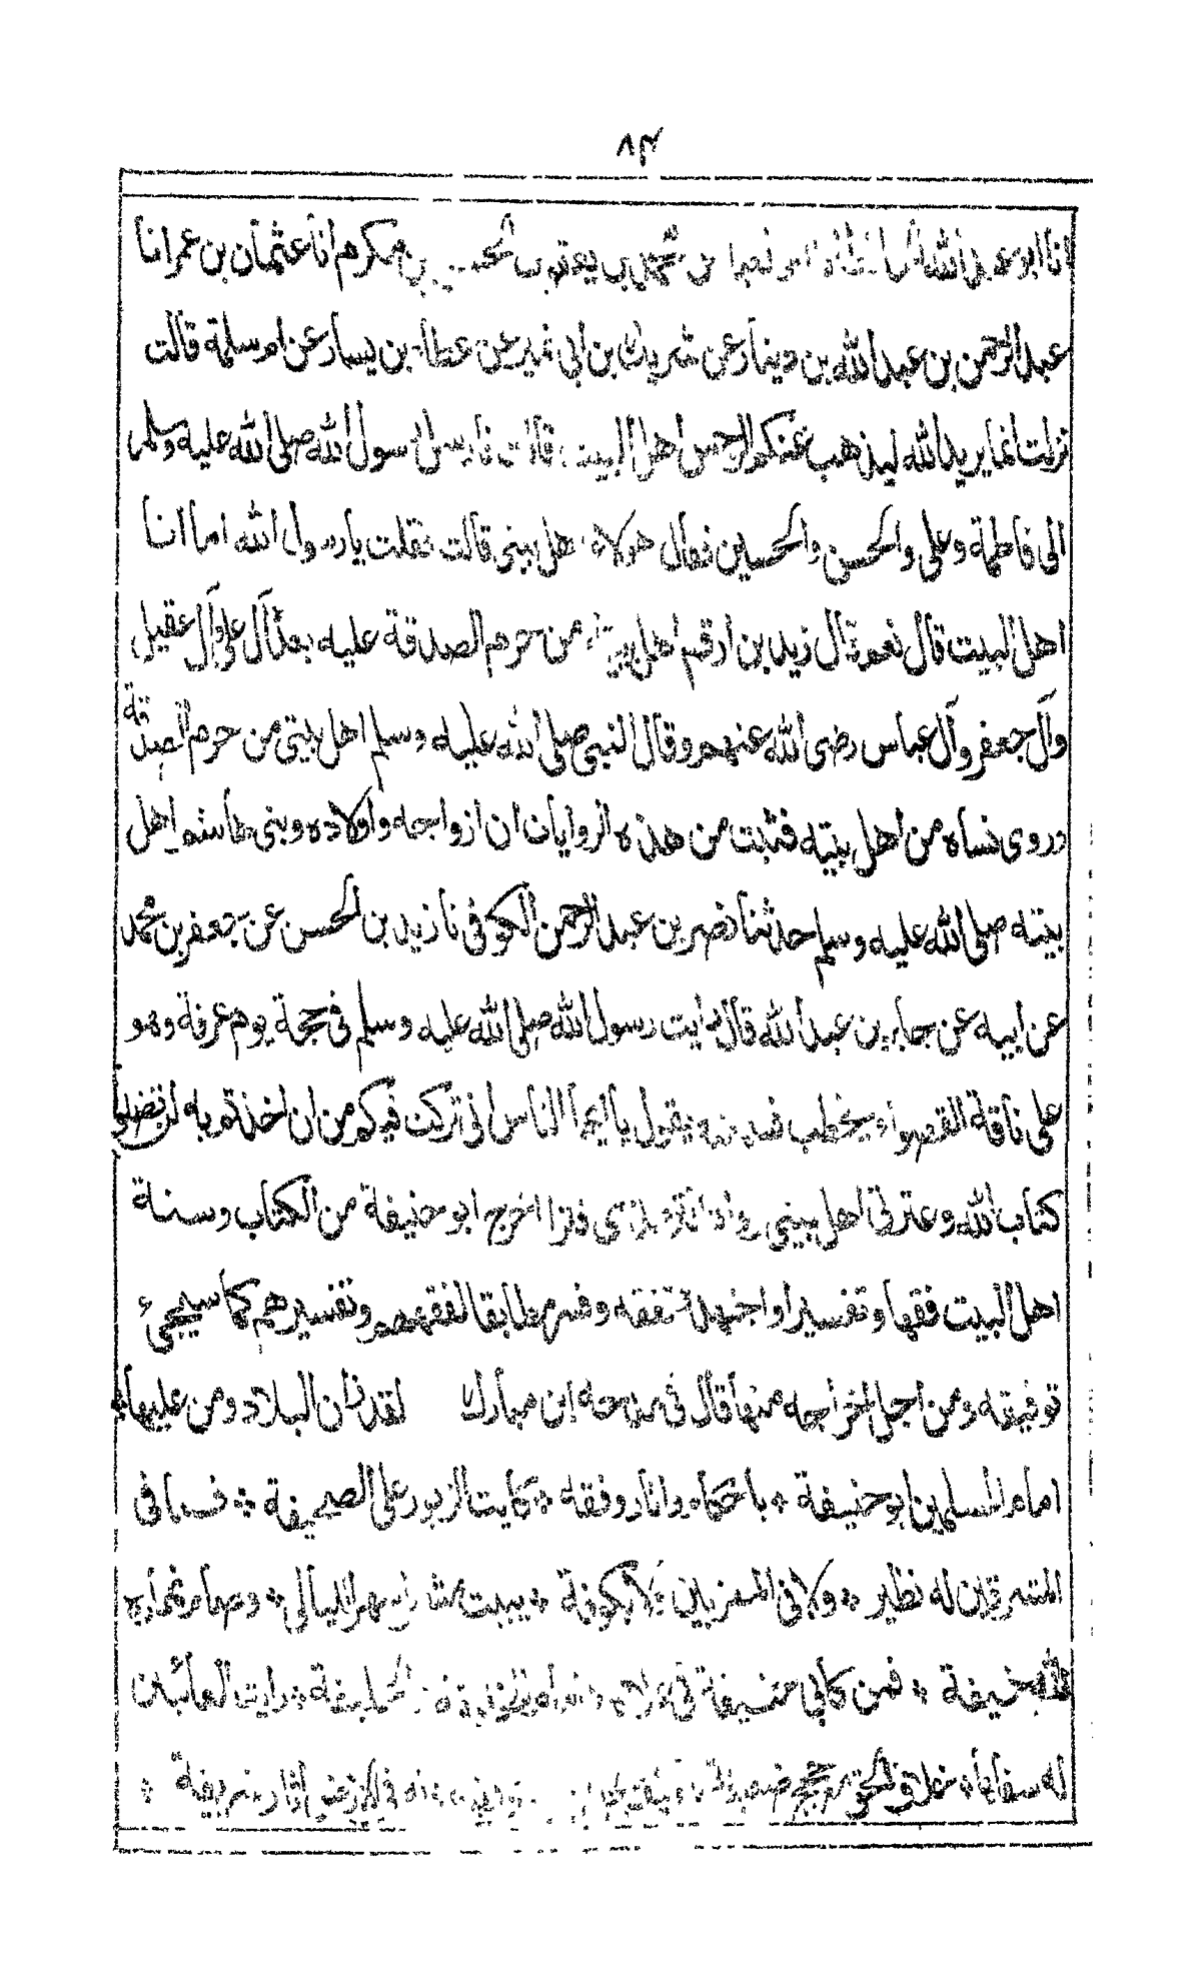 ٨٣
انا ابو عبد الله بن يعقوب بن مكرم انا عثمان بن عمر انا
عبد الرحمن بن عبد الله بن دينار عن شريك بن ابي نمير عن عطاء بن يسار عن ام سلمة قالت
نزلت انما يريد الله ليذهب عنكم الرجس اهل البيت قالت فارسل رسول الله صلى الله عليه وسلم
الى فاطمة وعلى والحسن والحسين فقال هؤلاء اهل بيتى قالت فقلت يا رسول الله اما انا
اهل البيت قال نعم وقال زيد بن ارقم اهل بيته من حرم الصدقة عليه بعده آل على وآل عقيل
وآل جعفر وآل عباس رضى الله عنهم وقال النبى صلى الله عليه وسلم اهل بيتى من حرم الصدقة
وروى نساه من اهل بيته فثبت من هذه الروايات ان ازواجه واولاده وبنى هاشم اهل
بيته صلى الله عليه وسلم حدثنا نصر بن عبد الرحمن الكوفى نا زيد بن الحسن عن جعفر بن محمد
عن ابيه عن جابر بن عبد الله قال رايت رسول الله صلى الله عليه وسلم فى حجة يوم عرفة وهو
على ناقة القصواء يخطب فسمعته يقول يا ايها الناس انى تركت فيكم من ان اخذتم به لن تضلوا
كتاب الله وعترتى اهل بيتى ابو حنيفة من الكتاب وسنة
اهل البيت فقها وتفسيرا واجتهد تفقه وفسر مطابقا لفقههم وتفسيرهم كما سيجىء
توفيقه ومن اجل اخراجه منها قال فى مدحه ابن مبارك لقد زان البلاد ومن عليها *
امام المسلمين ابو حنيفة * باحكام واثار وفقه * كايات الزبور على الصحيفة * فما فى
المشرقين له نظير * ولا فى المغربين ولا بكوفة * يبيت مشمرا سهر الليالى * وصام نهاره
لله خيفة * فمن كابى حنيفة فى الخليفة * رايت العائبين
له سفاها * خلاف الحق مع حجج ضعيفة فى الارض اثار شريفة *